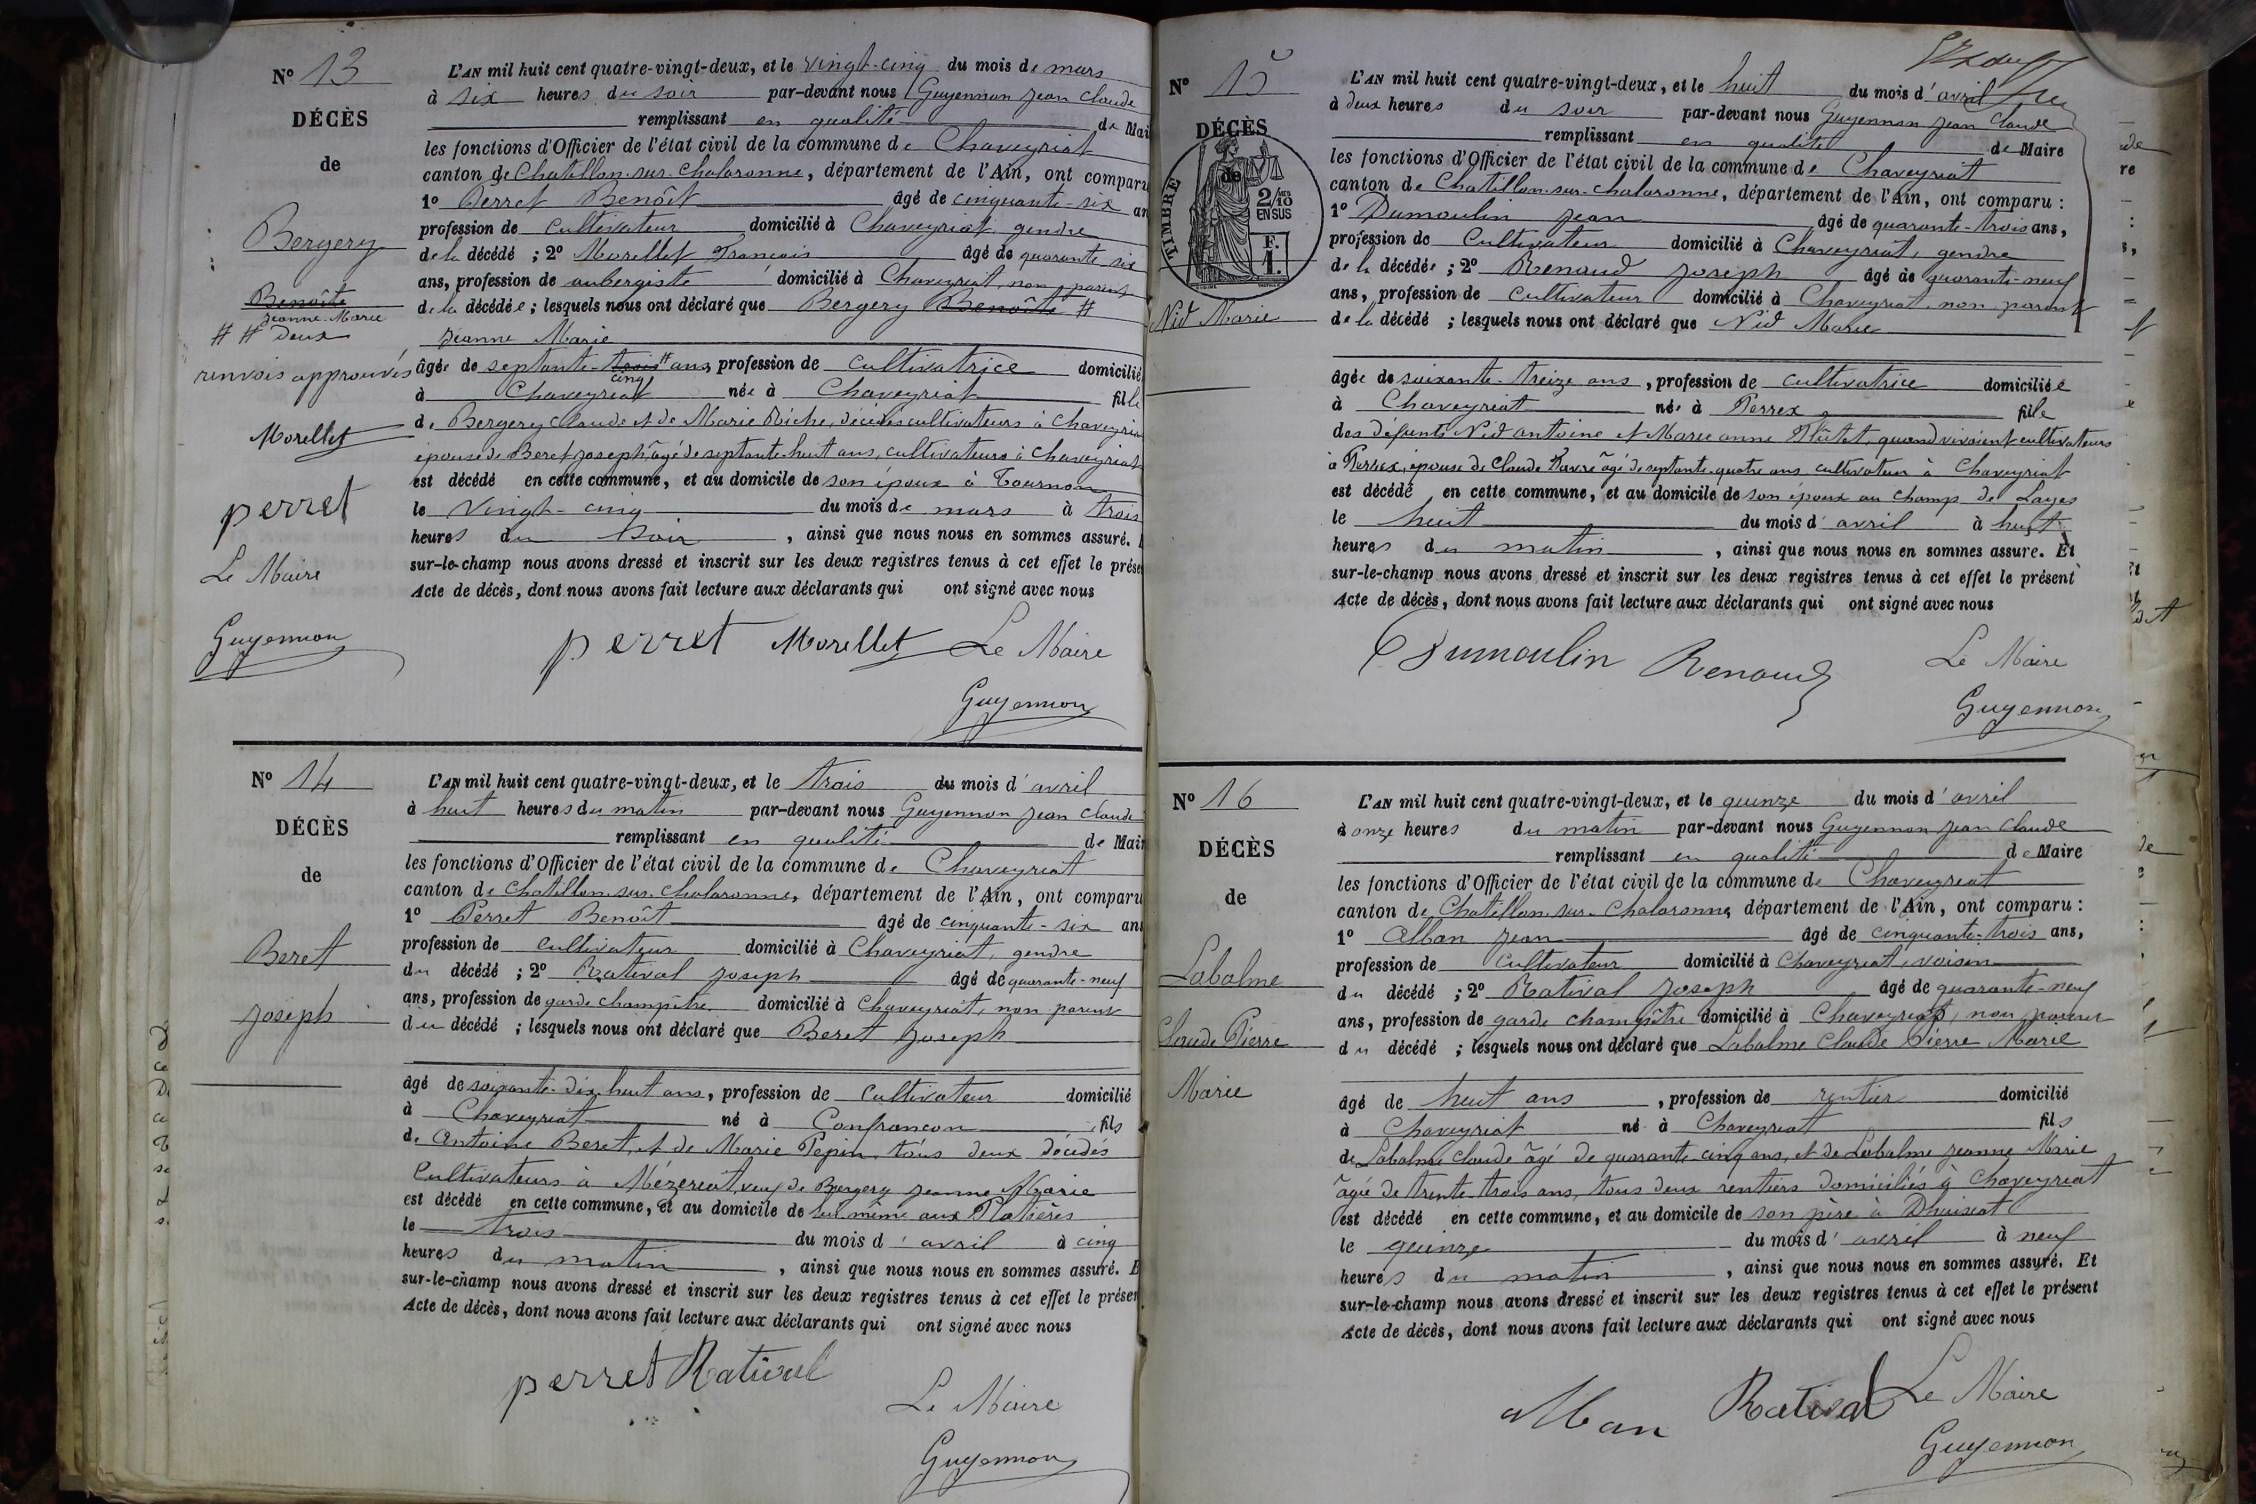 N° 13
DÉCÈS
de
Bergery
Benoîte
Jeanne-Marie
# # Deux
renvois approuvés
Morellet
perret
Le Maire
Guyennon
L'AN mil huit cent quatre-vingt-deux, et le vingt-cinq du mois de mars
à six heures du soir par-devant nous Guyennon Jean Claude
remplissant en qualité de Mai
les fonctions d'Officier de l'état civil de la commune de Chaveyriat
canton de Chatillon-sur-Chalaronne, département de l'Ain, ont comparu
1° Perret Benoît âgé de cinquante-six an
profession de cultivateur domicilié à Chaveyriat, gendre
de la décédé ; 2° Morellet François âgé de quarante six
ans, profession de aubergiste domicilié à Chaveyriat, non parent
de la décédée ; lesquels nous ont déclaré que Bergery Benoîte #
Jeanne Marie
âgée de septante-trois # ans, profession de cultivatrice domicilié
cinq
à Chaveyriat née à Chaveyriat fille
de Bergery Claude et de Marie Riche, décédés cultivateurs à Chaveyria
épouse de Beret Joseph, âgé de septante-huit ans, cultivateurs à Chaveyriat
est décédé en cette commune, et au domicile de son époux à Tournon
le vingt-cinq du mois de mars à trois
heures du soir, ainsi que nous nous en sommes assuré.
sur-le-champ nous avons dressé et inscrit sur les deux registres tenus à cet effet le prése
Acte de décès, dont nous avons fait lecture aux déclarants qui ont signé avec nous
perret Morellet Le Maire
Guyennon
N° 14
DÉCÈS
de
Beret
Joseph
L'AN mil huit cent quatre-vingt-deux, et le trois du mois d'avril
à huit heures du matin par-devant nous Guyennon Jean Claude
remplissant en qualité de Mair
les fonctions d'Officier de l'état civil de la commune de Chaveyriat
canton de Chatillon-sur-Chalaronne, département de l'Ain, ont comparu
1° Perret Benoît âgé de cinquante-six ans
profession de cultivateur domicilié à Chaveyriat, gendre
du décédé ; 2° Ratival Joseph âgé de quarante-neuf
ans, profession de garde champêtre domicilié à Chaveyriat, non parent
du décédé ; lesquels nous ont déclaré que Beret Joseph
âgé de soixante-dix-huit ans, profession de cultivateur domicilié
à Chaveyriat né à Confrancon fils
de Antoine Beret, et de Marie Pepin, tous deux décédés
cultivateurs à Mézériat, veuf de Bergery Jeanne Marie
est décédé en cette commune, et au domicile de lui même aux Platières
le trois du mois d'avril à cinq
heures du matin, ainsi que nous nous en sommes assuré. E
sur-le-champ nous avons dressé et inscrit sur les deux registres tenus à cet effet le présen
Acte de décès, dont nous avons fait lecture aux déclarants qui ont signé avec nous
perret Rativал
Le Maire
Guyennon
N° 15
DÉCÈS
de
TIMBRE
2/10
EN SUS
F.
1.
Nid Marie
L'AN mil huit cent quatre-vingt-deux, et le huit du mois d'avril
à deux heures du soir par-devant nous Guyennon Jean Claude
remplissant en qualité de Maire
les fonctions d'Officier de l'état civil de la commune de Chaveyriat
canton de Chatillon-sur-Chalaronne, département de l'Ain, ont comparu :
1° Dumoulin Jean âgé de quarante-trois ans,
profession de Cultivateur domicilié à Chaveyriat, gendre
de la décédée ; 2° Renaud Joseph âgé de quarante-neuf
ans, profession de cultivateur domicilié à Chaveyriat, non parent
de la décédé ; lesquels nous ont déclaré que Nid Marie
âgée de soixante-treize ans, profession de cultivatrice domiciliée
à Chaveyriat née à Perrex fille
des défunts Nid Antoine et Marie Anne quand vivaient cultivateurs
à Perrex, épouse de Claude âgé de septante-quatre ans, cultivateur à Chaveyriat
est décédé en cette commune, et au domicile de son époux au champ de Layes
le huit du mois d'avril à huit
heures du matin, ainsi que nous nous en sommes assuré. Et
sur-le-champ nous avons dressé et inscrit sur les deux registres tenus à cet effet le présent
Acte de décès, dont nous avons fait lecture aux déclarants qui ont signé avec nous
Dumoulin Renaud Le Maire
Guyennon
N° 16
DÉCÈS
de
Labalme
Claude Pierre
Marie
L'AN mil huit cent quatre-vingt-deux, et le quinze du mois d'avril
à onze heures du matin par-devant nous Guyennon Jean Claude
remplissant en qualité de Maire
les fonctions d'Officier de l'état civil de la commune de Chaveyriat
canton de Chatillon-sur-Chalaronne, département de l'Ain, ont comparu :
1° Alban Jean âgé de cinquante-trois ans,
profession de cultivateur domicilié à Chaveyriat, voisin
du décédé ; 2° Rativал Joseph âgé de quarante-neuf
ans, profession de garde champêtre domicilié à Chaveyriat, non parent
du décédé ; lesquels nous ont déclaré que Labalme Claude Pierre Marie
âgé de huit ans, profession de rentier domicilié
à Chaveyriat né à Chaveyriat fils
de Labalme Claude âgé de quarante cinq ans, et de Labalme Jeanne Marie
âgée de trente trois ans, tous deux rentiers domiciliés à Chaveyriat
est décédé en cette commune, et au domicile de son père à Dhuisiat
le quinze du mois d'avril à neuf
heures du matin, ainsi que nous nous en sommes assuré. Et
sur-le-champ nous avons dressé et inscrit sur les deux registres tenus à cet effet le présent
Acte de décès, dont nous avons fait lecture aux déclarants qui ont signé avec nous
Alban Rativал Le Maire
Guyennon